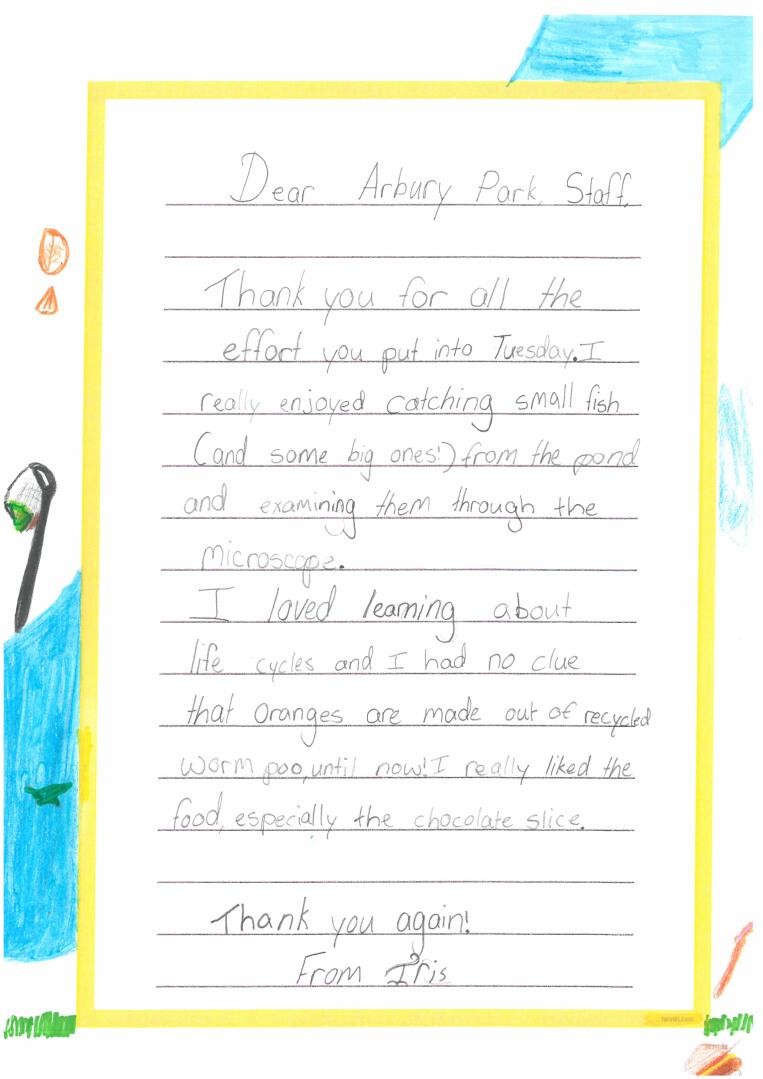 Dear Arbury Park Staff,
Thank you for all the
effort you put into Tuesday. I
really enjoyed catching small fish
(and some big ones!) from the pond
and examining them through the
microscope.
I loved learning about
life cycles and I had no clue
that Oranges are made out of recycled
worm poo, until now! I really liked the
food, especially the chocolate slice.
Thank you again!
From Iris